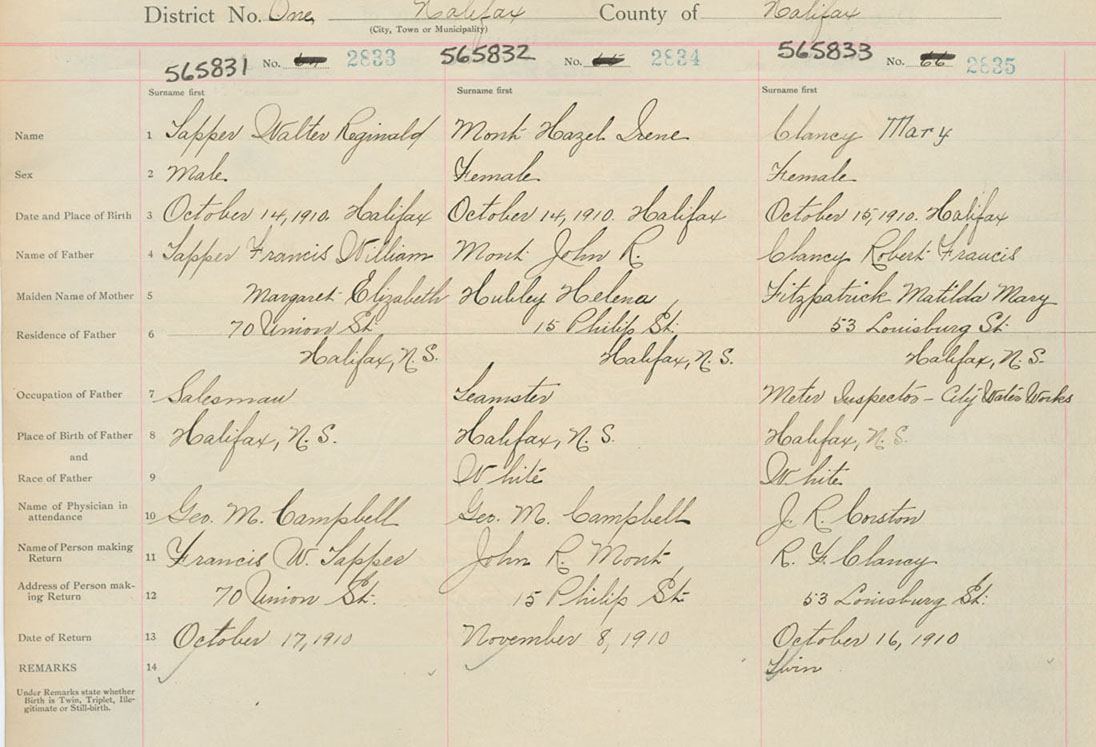 District No. One Halifax County of Halifax
(City, Town or Municipality)
565831 No. 2833 565832 No. 2834 565833 No. 66 2835
Surname first Surname first Surname first
Name 1 Sapper Walter Reginald Mont Hazel Irene Clancy Mary
Sex 2 Male Female Female
Date and Place of Birth 3 October 14, 1910. Halifax October 14, 1910. Halifax October 15, 1910. Halifax
Name of Father 4 Sapper Francis William Mont John R. Clancy Robert Francis
Maiden Name of Mother 5 Margaret Elizabeth Hubley Helena Fitzpatrick Matilda Mary
Residence of Father 6 70 Union St. 15 Philip St. 53 Louisburg St.
Halifax, N.S. Halifax, N.S. Halifax, N.S.
Occupation of Father 7 Salesman Teamster Meter Inspector - City Water Works
Place of Birth of Father 8 Halifax, N.S. Halifax, N.S. Halifax, N.S.
and
Race of Father 9 White White
Name of Physician in
attendance 10 Geo. M. Campbell Geo. M. Campbell J. R. Corston
Name of Person making
Return 11 Francis W. Sapper John R. Mont R. F. Clancy
Address of Person mak-
ing Return 12 70 Union St. 15 Philip St. 53 Louisburg St.
Date of Return 13 October 17, 1910 November 8, 1910 October 16, 1910
REMARKS 14 Twin
Under Remarks state whether
Birth is Twin, Triplet, Ille-
gitimate or Still-birth.